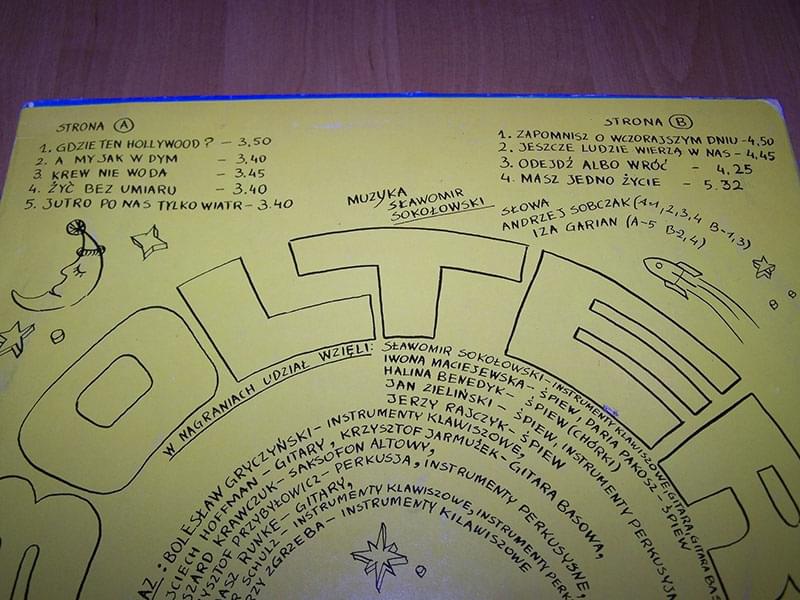 STRONA A
1. GDZIE TEN HOLLYWOOD? - 3,50
2. A MY JAK W DYM - 3,40
3 KREW NIE WODA - 3.45
4. ŻYĆ BEZ UMIARU - 3.40
5. JUTRO PO NAS TYLKO WIATR - 3.40
STRONA B
1. ZAPOMNISZ O WCZORAJSZYM DNIU - 4,50
2. JESZCZE LUDZIE WIERZĄ W NAS - 4,45
3. ODEJDŹ ALBO WRÓĆ - 4,25
4. MASZ JEDNO ŻYCIE - 5.32
MUZYKA
SŁAWOMIR
SOKOŁOWSKI
SŁOWA
ANDRZEJ SOBCZAK (A-1,2,3,4 B-1,3)
IZA GARIAN (A-5 B2,4)
OLTER
W NAGRANIACH UDZIAŁ WZIĘLI:
SŁAWOMIR SOKOŁOWSKI - INSTRUMENTY KLAWISZOWE, GITARA, GITARA BAS
IWONA MACIEJEWSKA - ŚPIEW, DARIA PAKOSZ - ŚPIEW
HALINA BENEDYK - ŚPIEW (CHÓRKI)
JAN ZIELIŃSKI - ŚPIEW, INSTRUMENTY PERKUSYJN
JERZY RAJCZYK - ŚPIEW
AZ: BOLESŁAW GRYCZYŃSKI - INSTRUMENTY KLAWISZOWE,
JCIECH HOFFMAN - GITARY, KRZYSZTOF JARMUŻEK - GITARA BASOWA,
SZARD KRAWCZUK - SAKSOFON ALTOWY,
YSZTOF PRZYBYŁOWICZ - PERKUSJA, INSTRUMENTY PERKUSYJNE,
ASZ RUNKE - GITARY,
R SCHULZ - INSTRUMENTY KLAWISZOWE, INSTRUMENTY PERK
RZY ZGRZEBA - INSTRUMENTY KILAWISZOWE